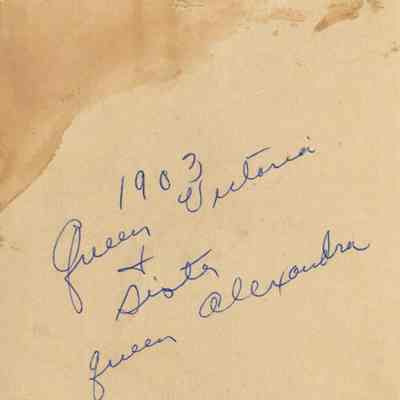 1903
Queen Victoria
+
Sister
queen Alexandra